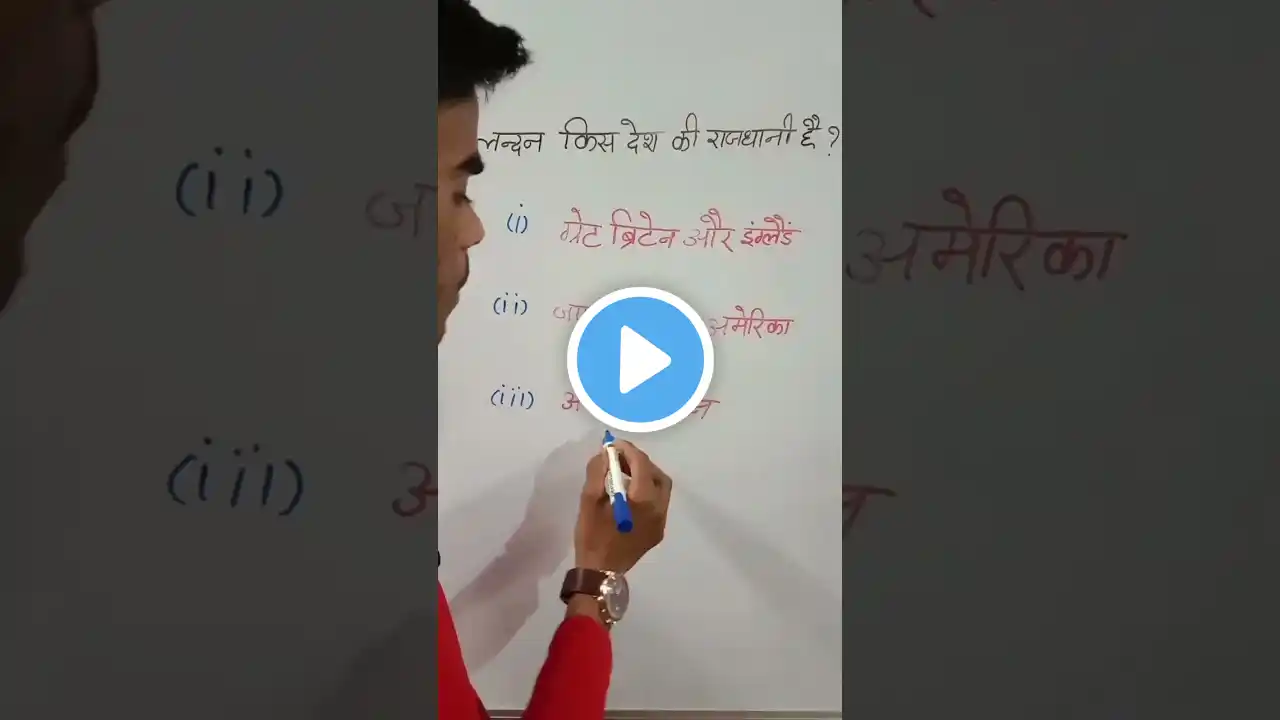 लन्दन किस देश की राजधानी है ?
(i) ग्रेट ब्रिटेन और इंग्लैंड
(ii) अमेरिका
(iii)